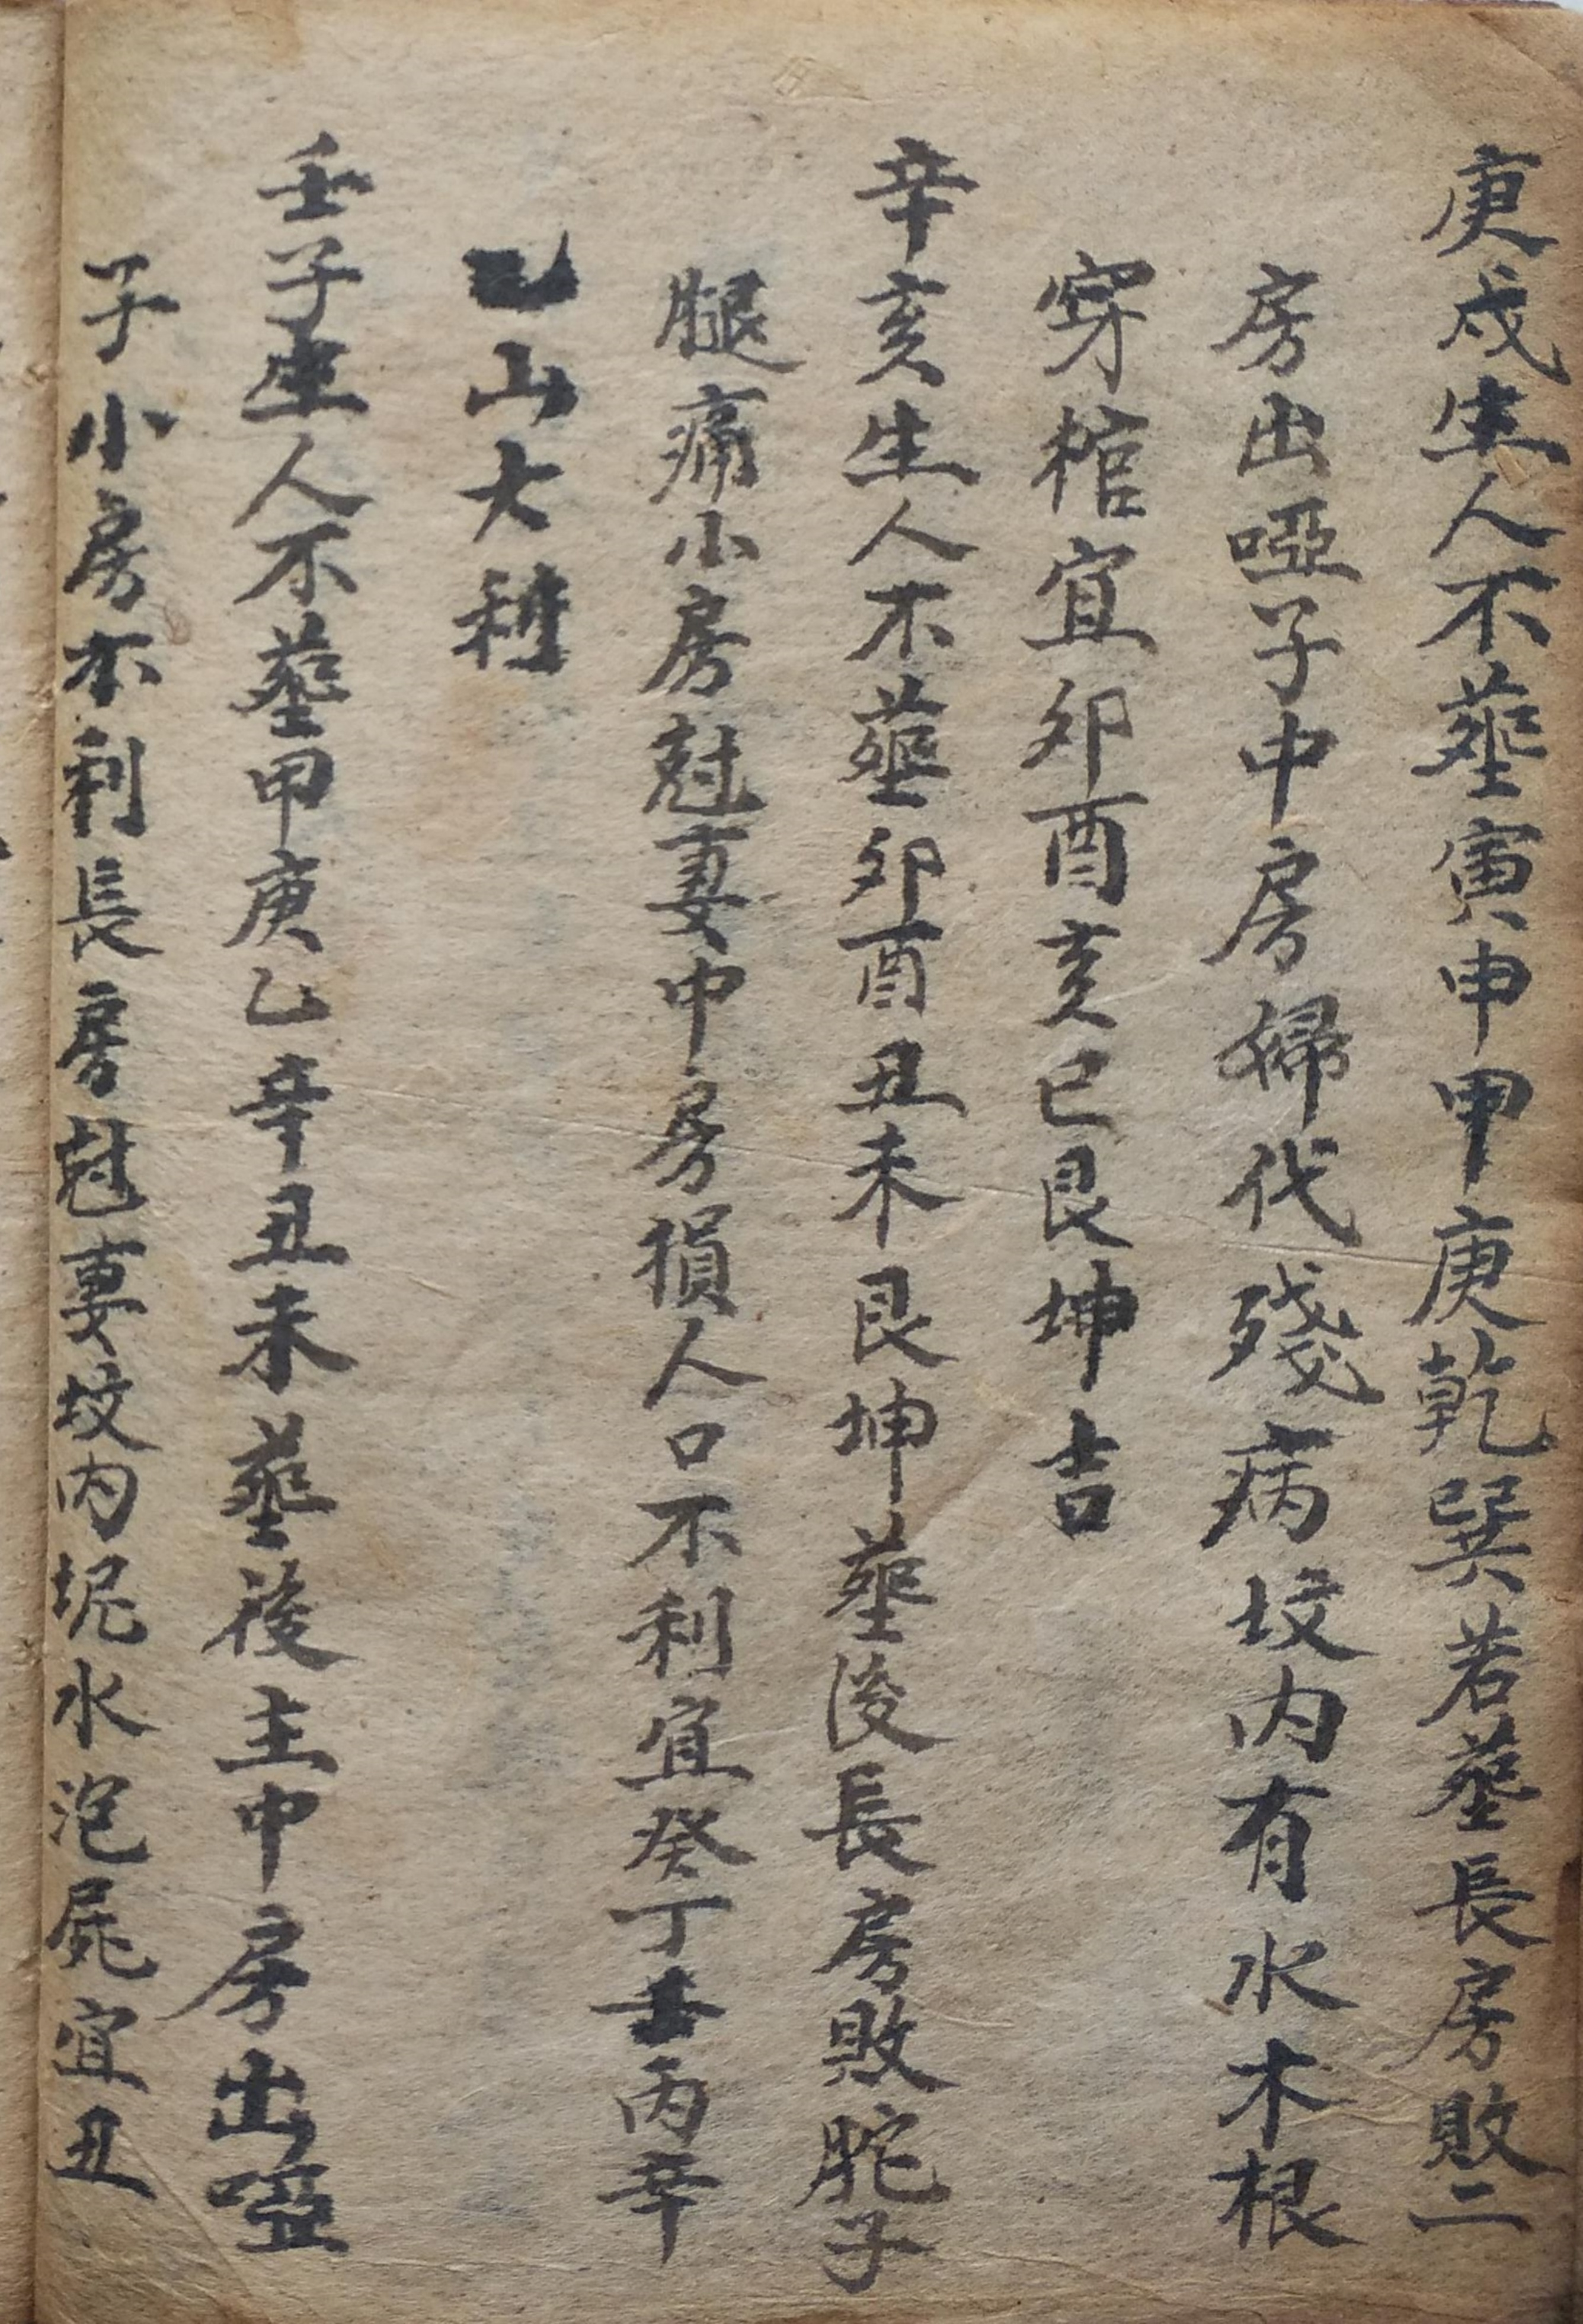 庚戍生人不塟寅申甲庚乾巽若塟長房敗二
房出啞子中房婦代殘病坟内有水木根
穿棺宜卯酉亥巳艮坤吉
辛亥生人不塟卯酉丑未艮坤塟後長房敗胣子
腿痛小房尅妻中房損人口不利宜癸丁壬丙辛
乙山大利
壬子生人不塟甲庚乙辛丑未塟後主中房出啞
子小房不利長房尅妻坟内坭水泡屍宜丑